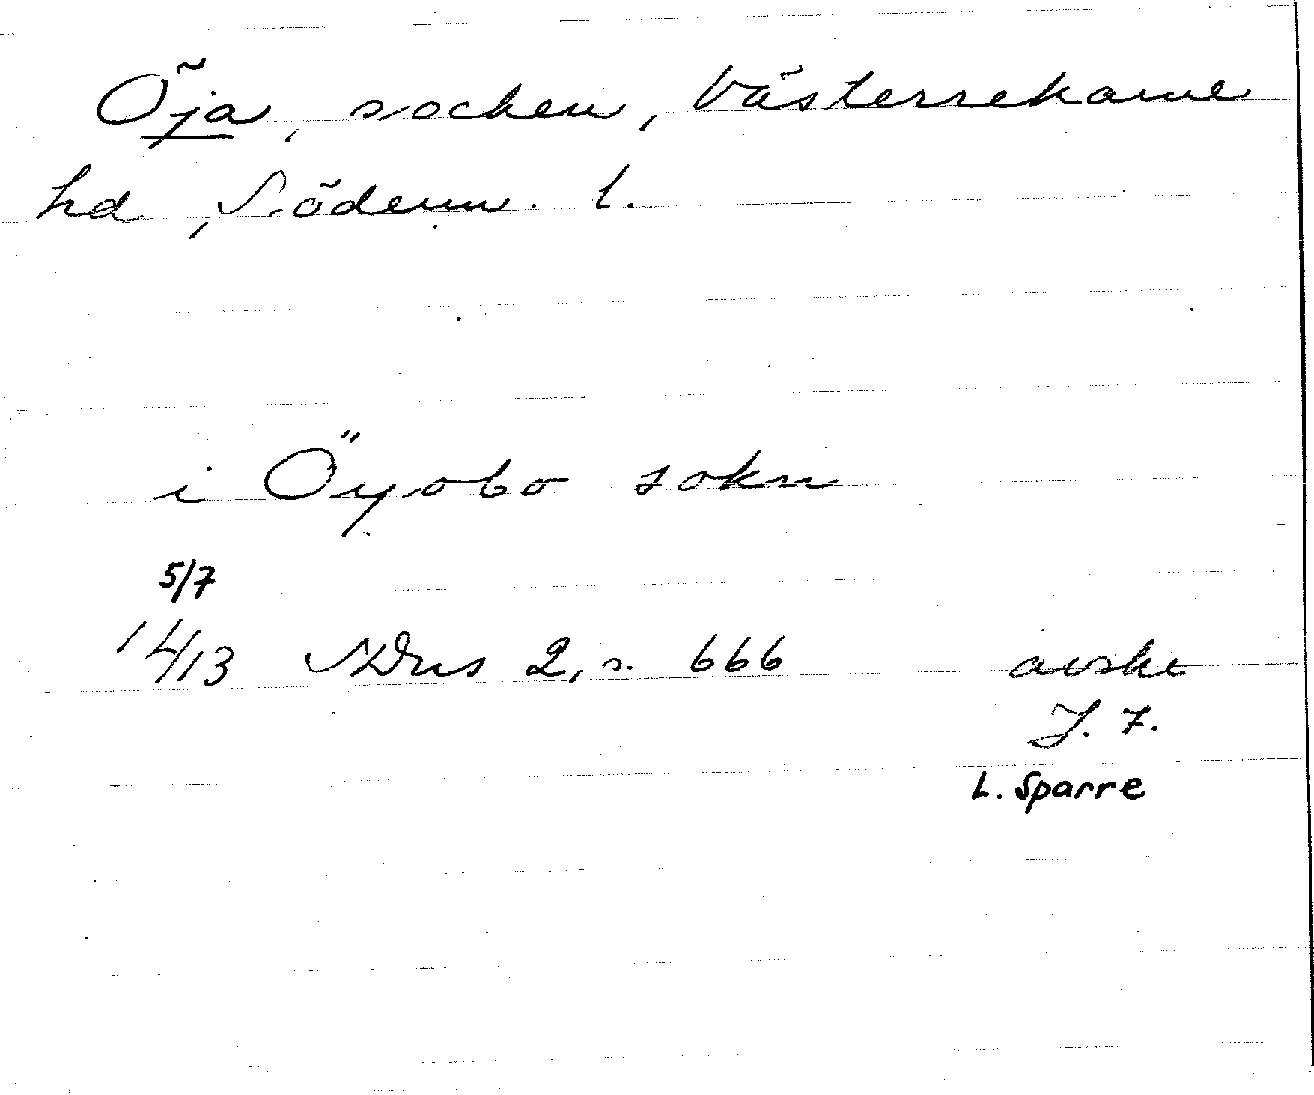 Öja, socken, Västerrekarne
hd, Söderm. l.
i Öyobo sokn
5/7
14/13 SDns 2, s. 666 avskr
J. F.
L. Sparre